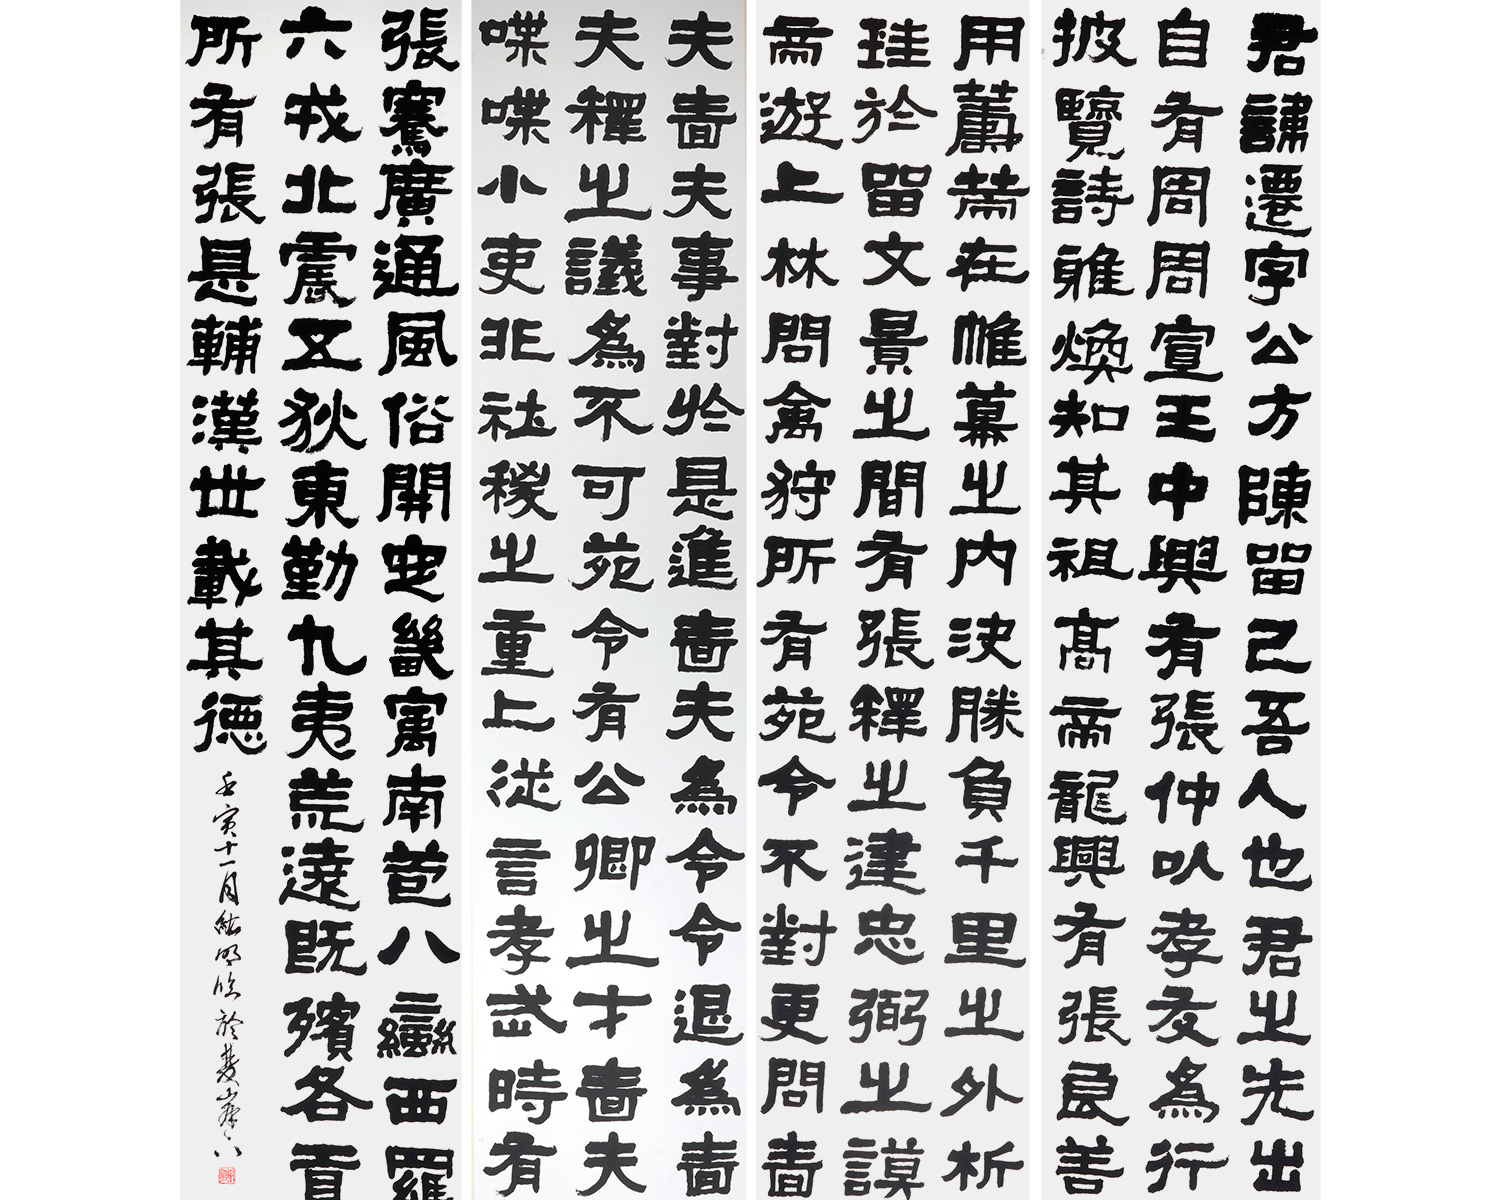 君諱遷字公方陳留己吾人也君之先出
自有周周宣王中興有張仲以孝友為行
披覽詩雅煥知其祖高帝龍興有張良善
用籌策在帷幕之内決勝負千里之外析
珪於留文景之間有張釋之建忠弼之謨
帝遊上林問禽狩所有苑令不對更問嗇
夫嗇夫事對於是進嗇夫為令令退為嗇
夫釋之議為不可苑令有公卿之才嗇夫
喋喋小吏非社稷之重上從言孝武時有
張騫廣通風俗開定畿寓南苞八蠻西羈
六戎北震五狄東勤九夷荒遠既殯各貢
所有張是輔漢世載其德
壬寅十一月 明臨於